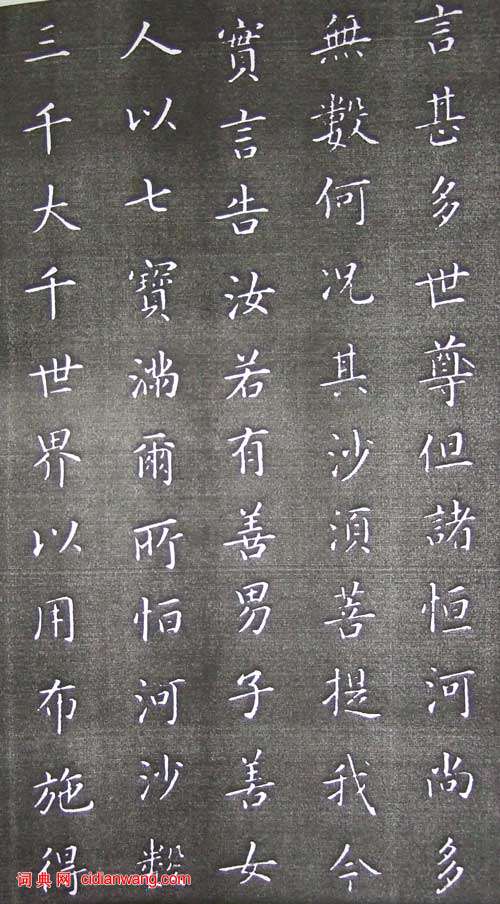 言甚多世尊但諸恒河尚多
無數何况其沙須菩提我今
實言告汝若有善男子善女
人以七寶滿爾所恒河沙數
三千大千世界以用布施得
词典网 cidianwang.com